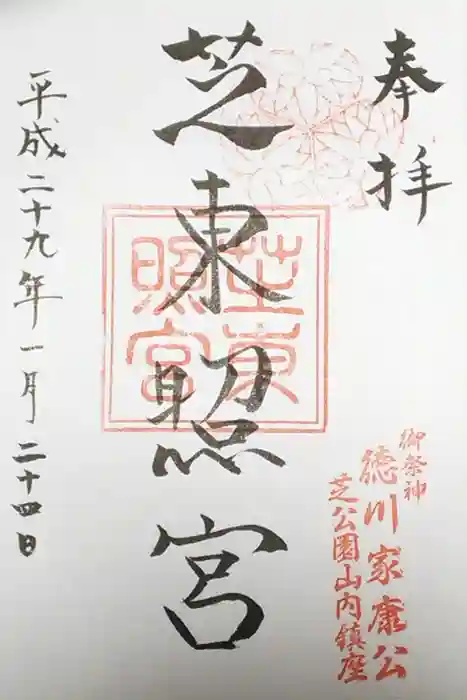 奉拝
芝東照宮
芝東照宮
御祭神
徳川家康公
芝公園山内鎮座
平成二十九年一月二十四日